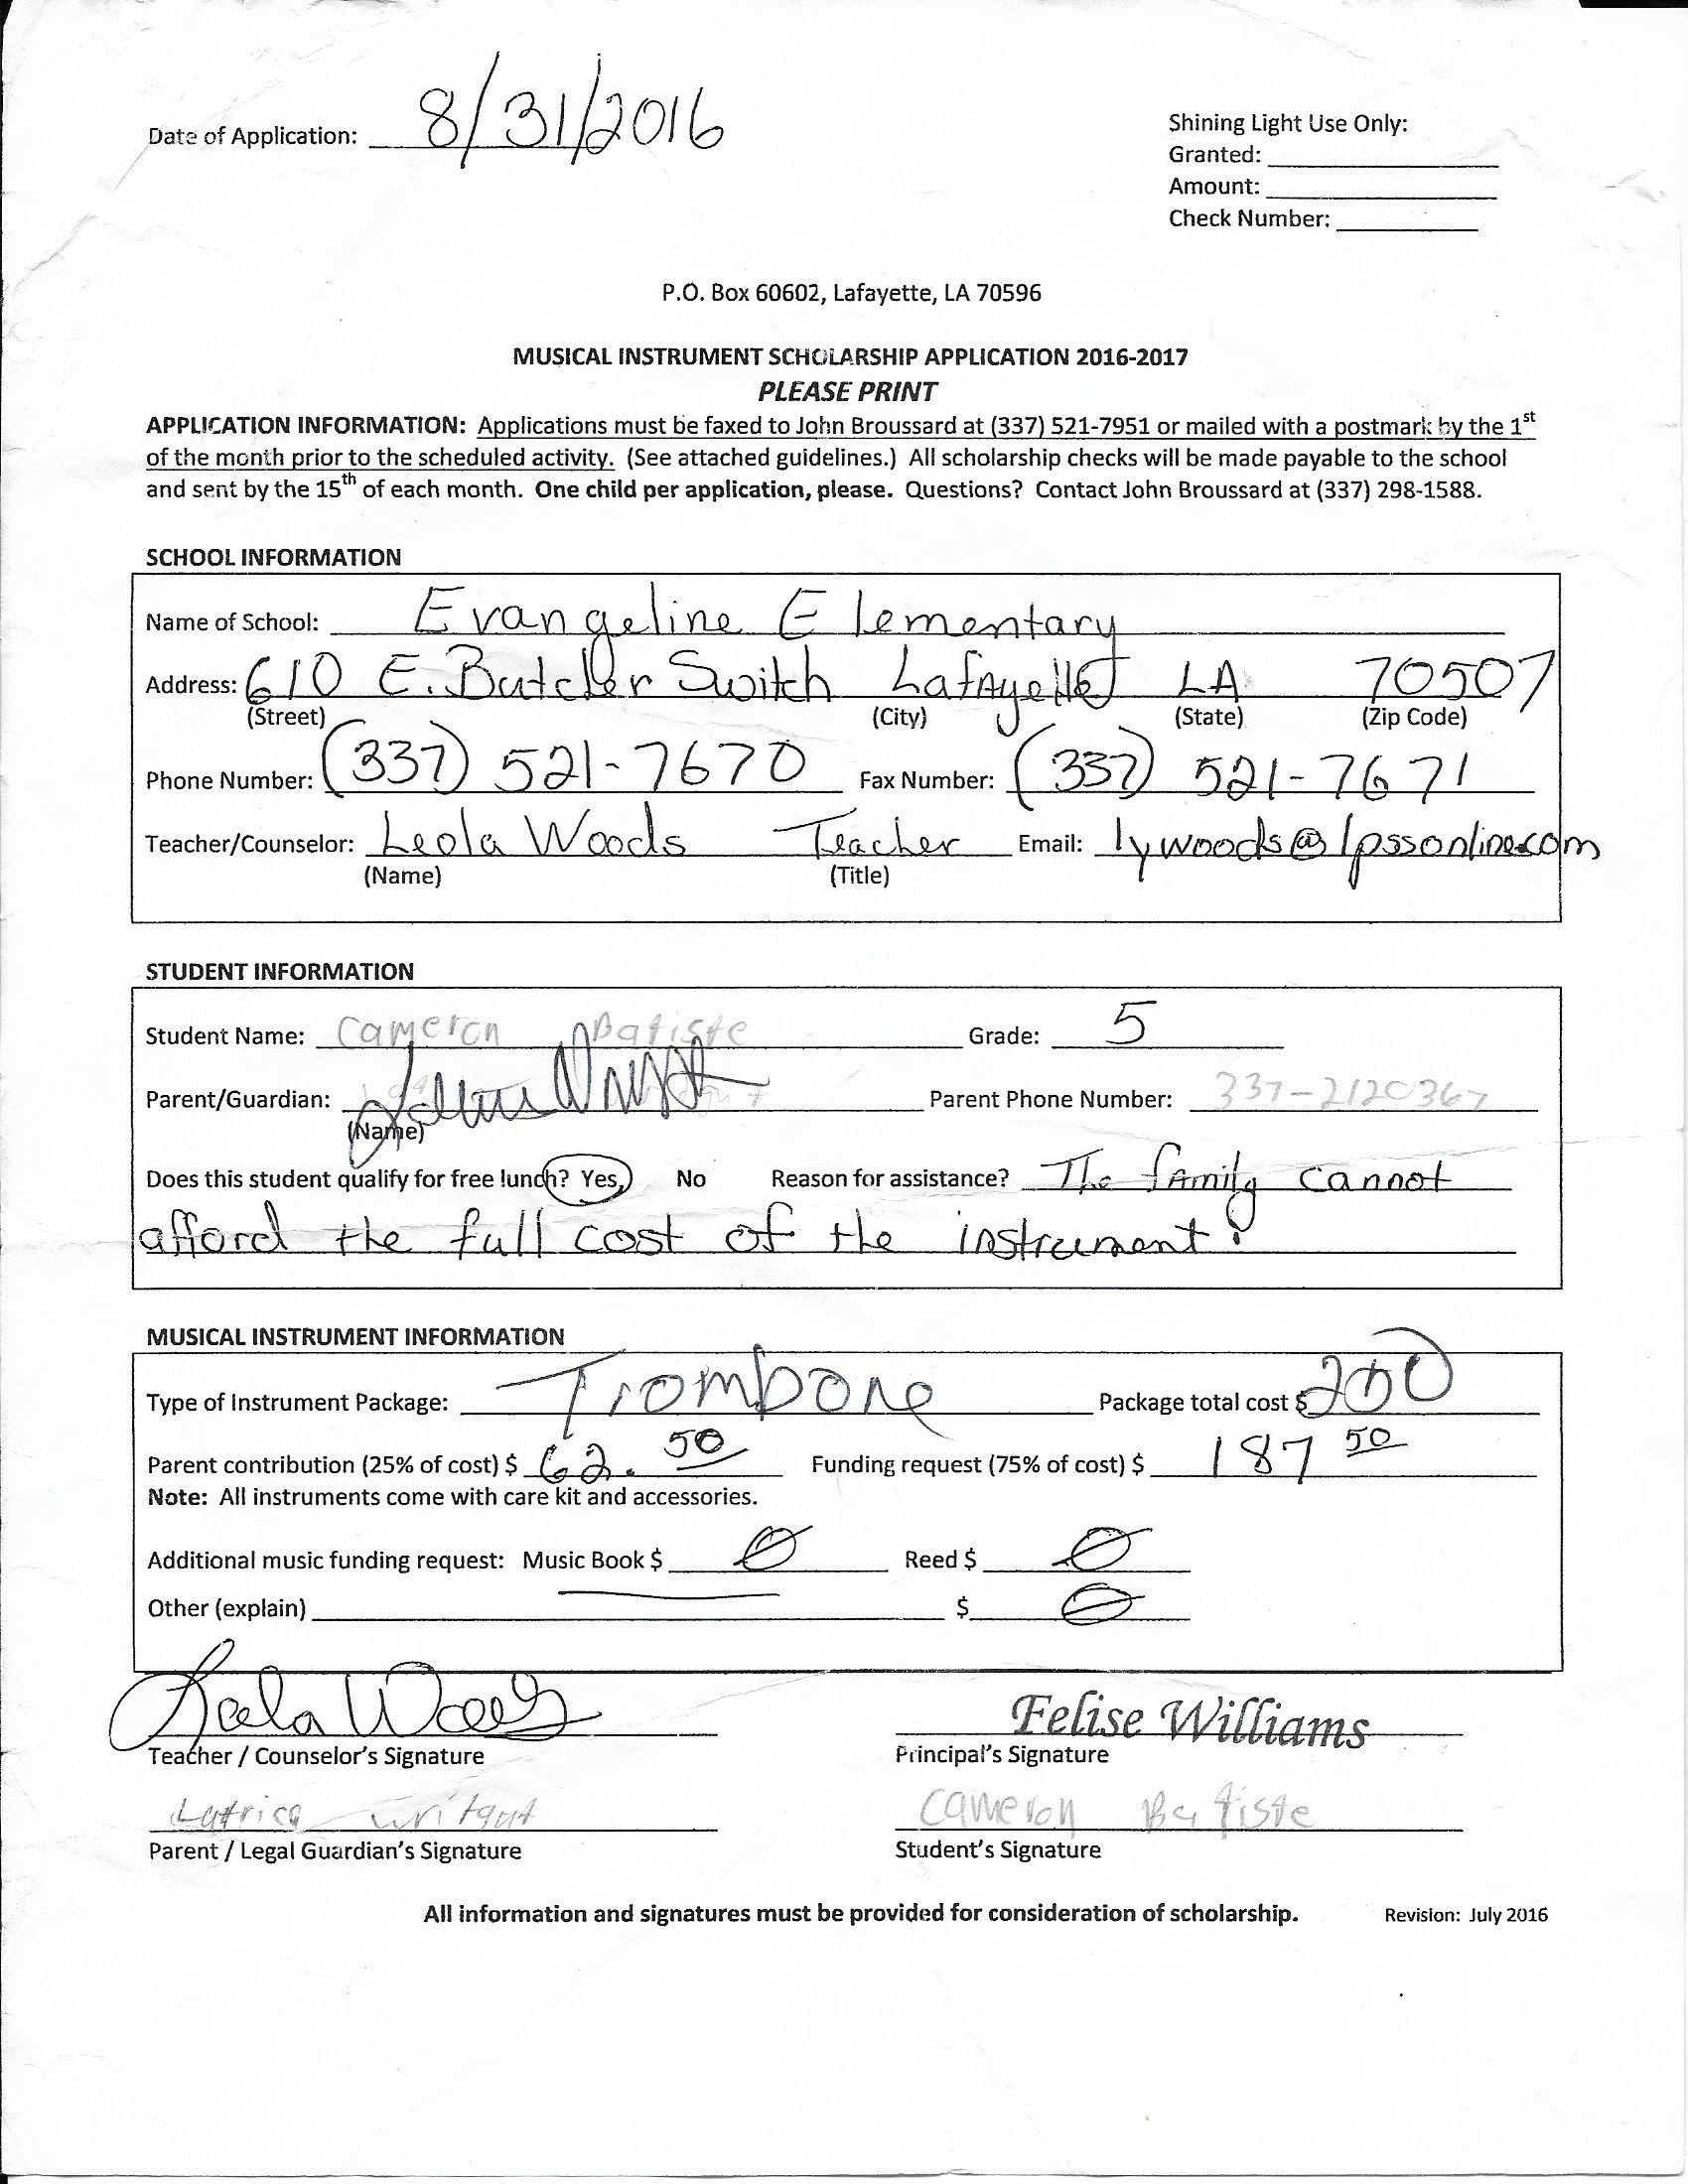 Date of Application: 8/31/2016
Shining Light Use Only:
Granted:
Amount:
Check Number:
P.O. Box 60602, Lafayette, LA 70596
MUSICAL INSTRUMENT SCHOLARSHIP APPLICATION 2016-2017
PLEASE PRINT
APPLICATION INFORMATION: Applications must be faxed to John Broussard at (337) 521-7951 or mailed with a postmark by the 1st
of the month prior to the scheduled activity. (See attached guidelines.) All scholarship checks will be made payable to the school
and sent by the 15th of each month. One child per application, please. Questions? Contact John Broussard at (337) 298-1588.
SCHOOL INFORMATION
Name of School: Evangeline Elementary
Address: 610 E. Butcher Switch Lafayette LA 70507
(Street) (City) (State) (Zip Code)
Phone Number: (337) 521-7670 Fax Number: (337) 521-7671
Teacher/Counselor: Leola Woods Teacher Email: lywoods@lpssonline.com
(Name) (Title)
STUDENT INFORMATION
Student Name: Cameron Batiste Grade: 5
Parent/Guardian: Parent Phone Number: 337-2120367
(Name)
Does this student qualify for free lunch? Yes, No Reason for assistance? The family cannot
afford the full cost of the instrument.
MUSICAL INSTRUMENT INFORMATION
Type of Instrument Package: Trombone Package total cost $
Parent contribution (25% of cost) $ 62.50 Funding request (75% of cost) $ 187 50
Note: All instruments come with care kit and accessories.
Additional music funding request: Music Book $ 0 Reed $ 0
Other (explain) $ 0
Leola Woods
Felise Williams
Teacher / Counselor's Signature
Principal's Signature
Latrica
Cameron Batiste
Parent / Legal Guardian's Signature
Student's Signature
All information and signatures must be provided for consideration of scholarship. Revision: July 2016